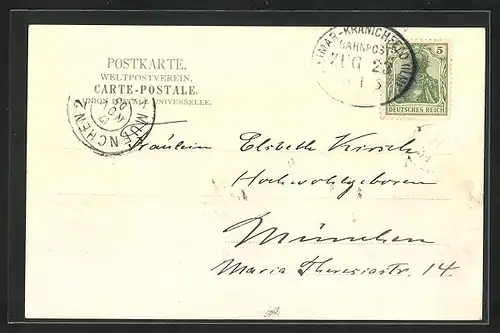 POSTKARTE.
WELTPOSTVEREIN.
CARTE-POSTALE.
UNION POSTALE UNIVERSELLE.
MÜNCHEN 2
IMAR-KRANICHFELD
BAHNPOST
ZUG 23
5
DEUTSCHES REICH
Fräulein Elisbeth Kirsch
Hochwohlgeboren
München
Maria Theresiastr. 14.